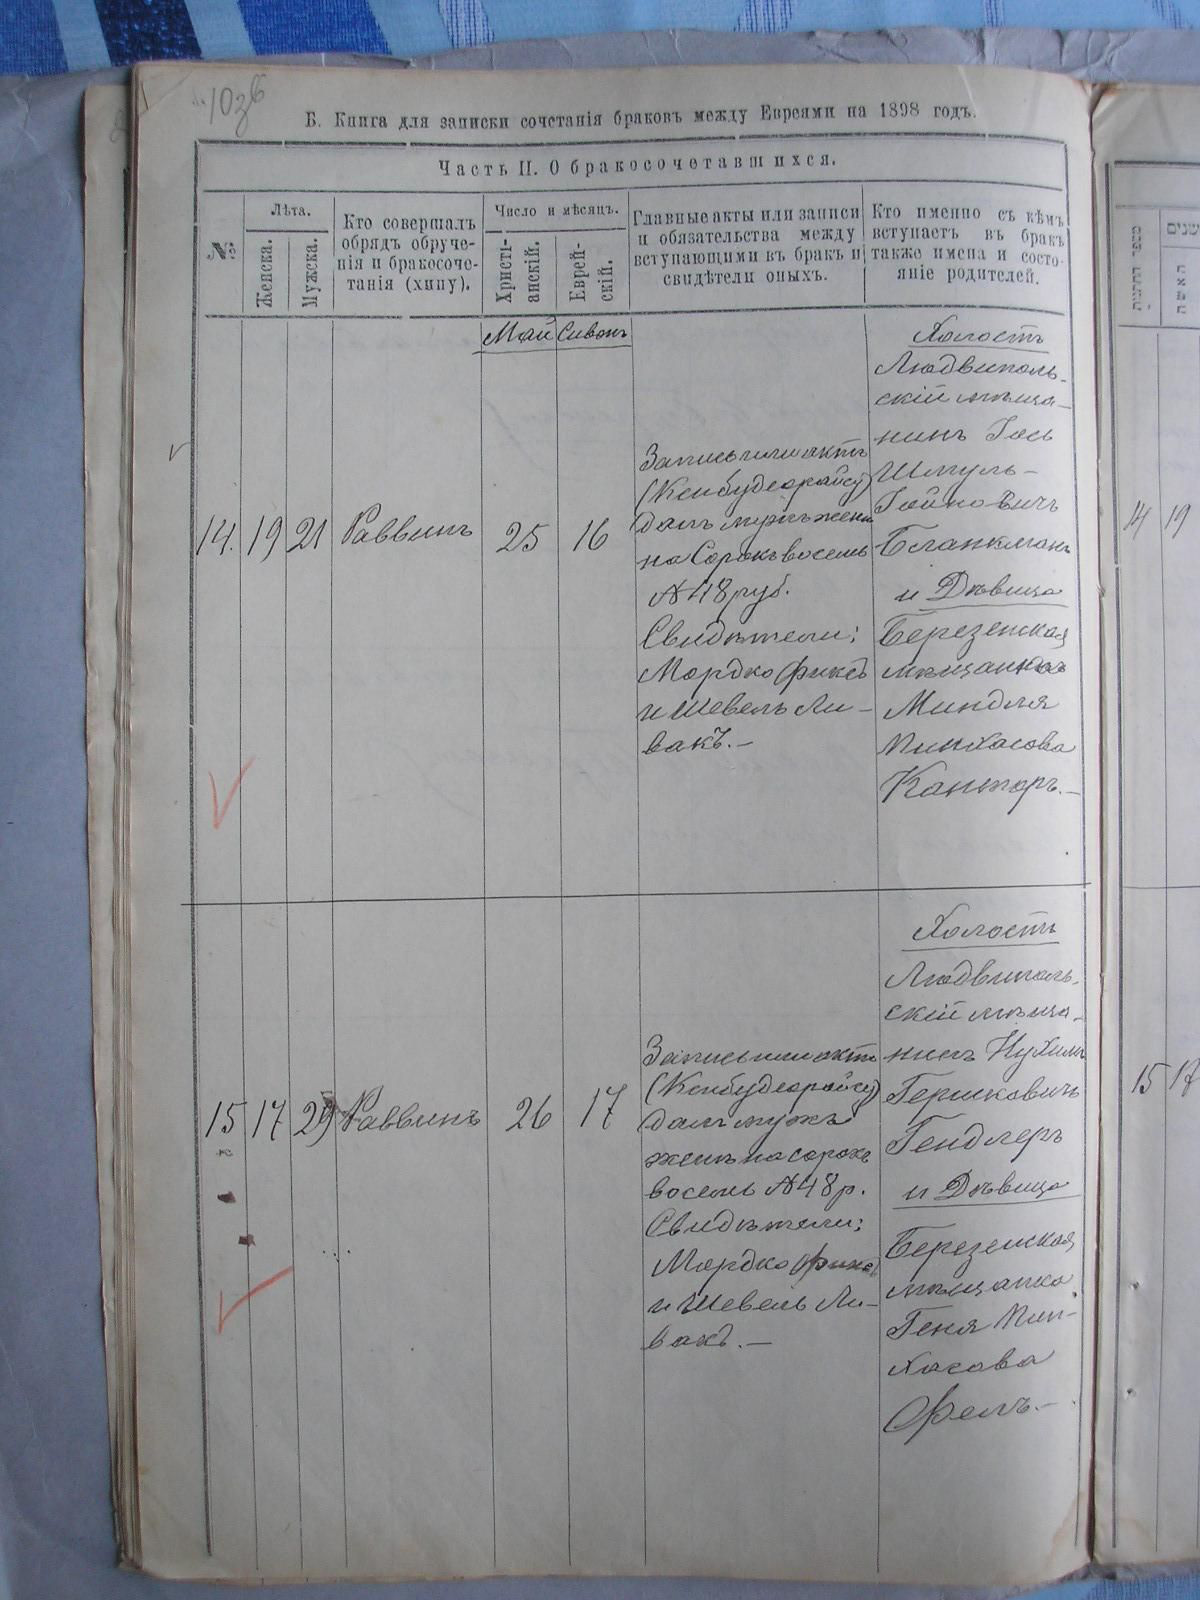 Б. Книга для записки сочетанія браковъ между Евреями на 1898 годъ.
Часть II. О бракосочетавшихся.
№
Лѣта.
Женска.
Мужска.
Кто совершалъ
обрядъ обруче-
нія и бракосоче-
танія (хипу).
Число и мѣсяцъ.
Христі-
анскій.
Еврей-
скій.
Главные акты или записи
и обязательства между
вступающими въ бракъ и
свидѣтели оныхъ.
Кто именно съ кѣмъ
вступаетъ въ бракъ
также имена и состо-
яніе родителей.
Май Сивонъ
14. 19 21 Раввинъ 25 16
Запись или актъ
(Кенбудеорайсу)
далъ мужъ жени
на Сорокъ восемь
№ 48 руб.
Свидѣтели:
Мордко Фикс
и Шевель Ли-
вакъ.—
Холостъ
Людвиполь-
скій мѣща-
нинъ Іось
Шмуль-
Гойновичъ
Бланкманъ
и Дѣвица
Березенская
мѣщанка
Миндля
Пинхасова
Канторъ.—
15 17 29 Раввинъ 26 17
Запись или актъ
(Кенбудеорайсу)
далъ мужъ
женѣ на сорокъ
восемь № 48 р.
Свидѣтели:
Мордко Фикс
и Шевель Ли-
вакъ.—
Холостъ
Людвиполь-
скій мѣща-
нинъ Нухимъ
Гершковичъ
Гендлеръ
и Дѣвица
Березенская
мѣщанка
Геня Пин-
хасова
Фелъ.—
14 19
15 17
שנים
האשה